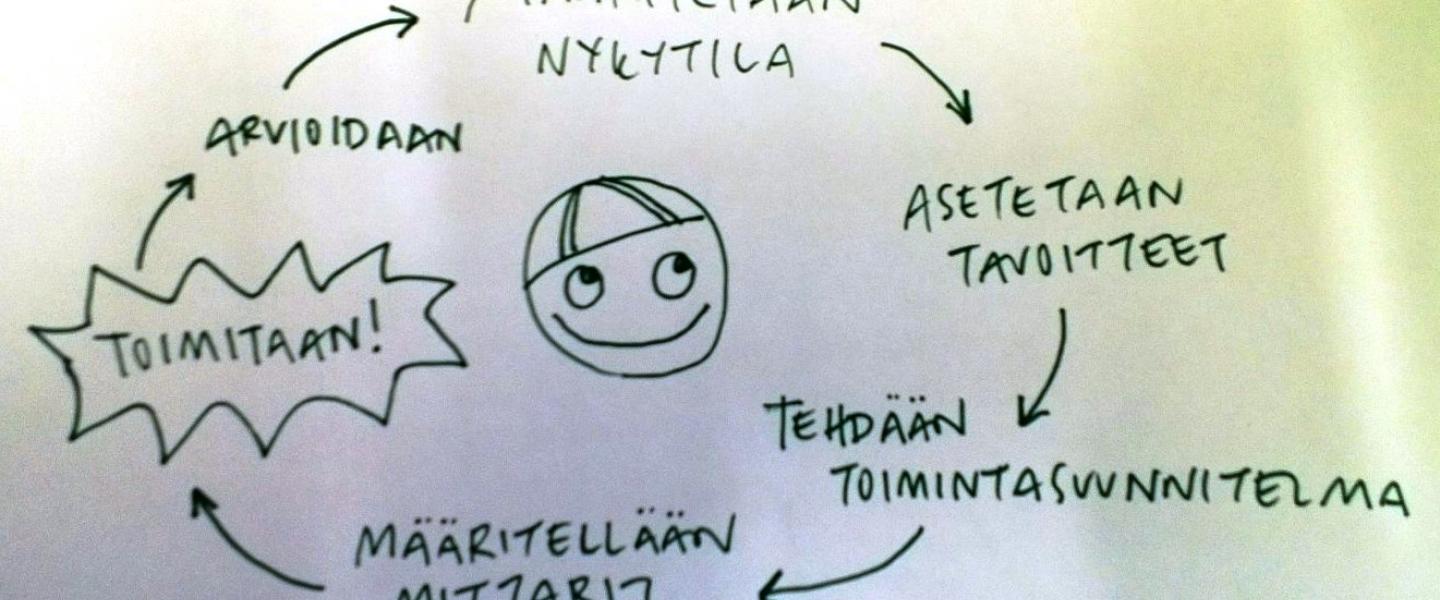 NYKYTILA
ASETETAAN
TAVOITTEET
TEHDÄÄN
TOIMINTASUUNNITELMA
MÄÄRITELLÄÄN
MITTARIT
TOIMITAAN!
ARVIOIDAAN